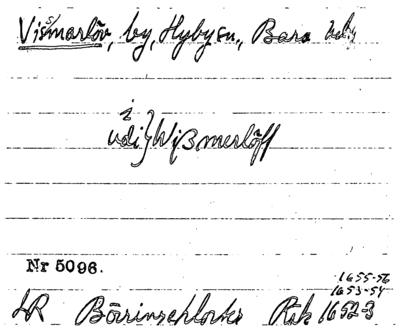 Vissmarlöv, by, Hyby sn., Bara hd.,
i
udi } Wißmerlöff
Nr 5096.
1655-56
1653-54
LR Börringeklosters Räk 1652-3